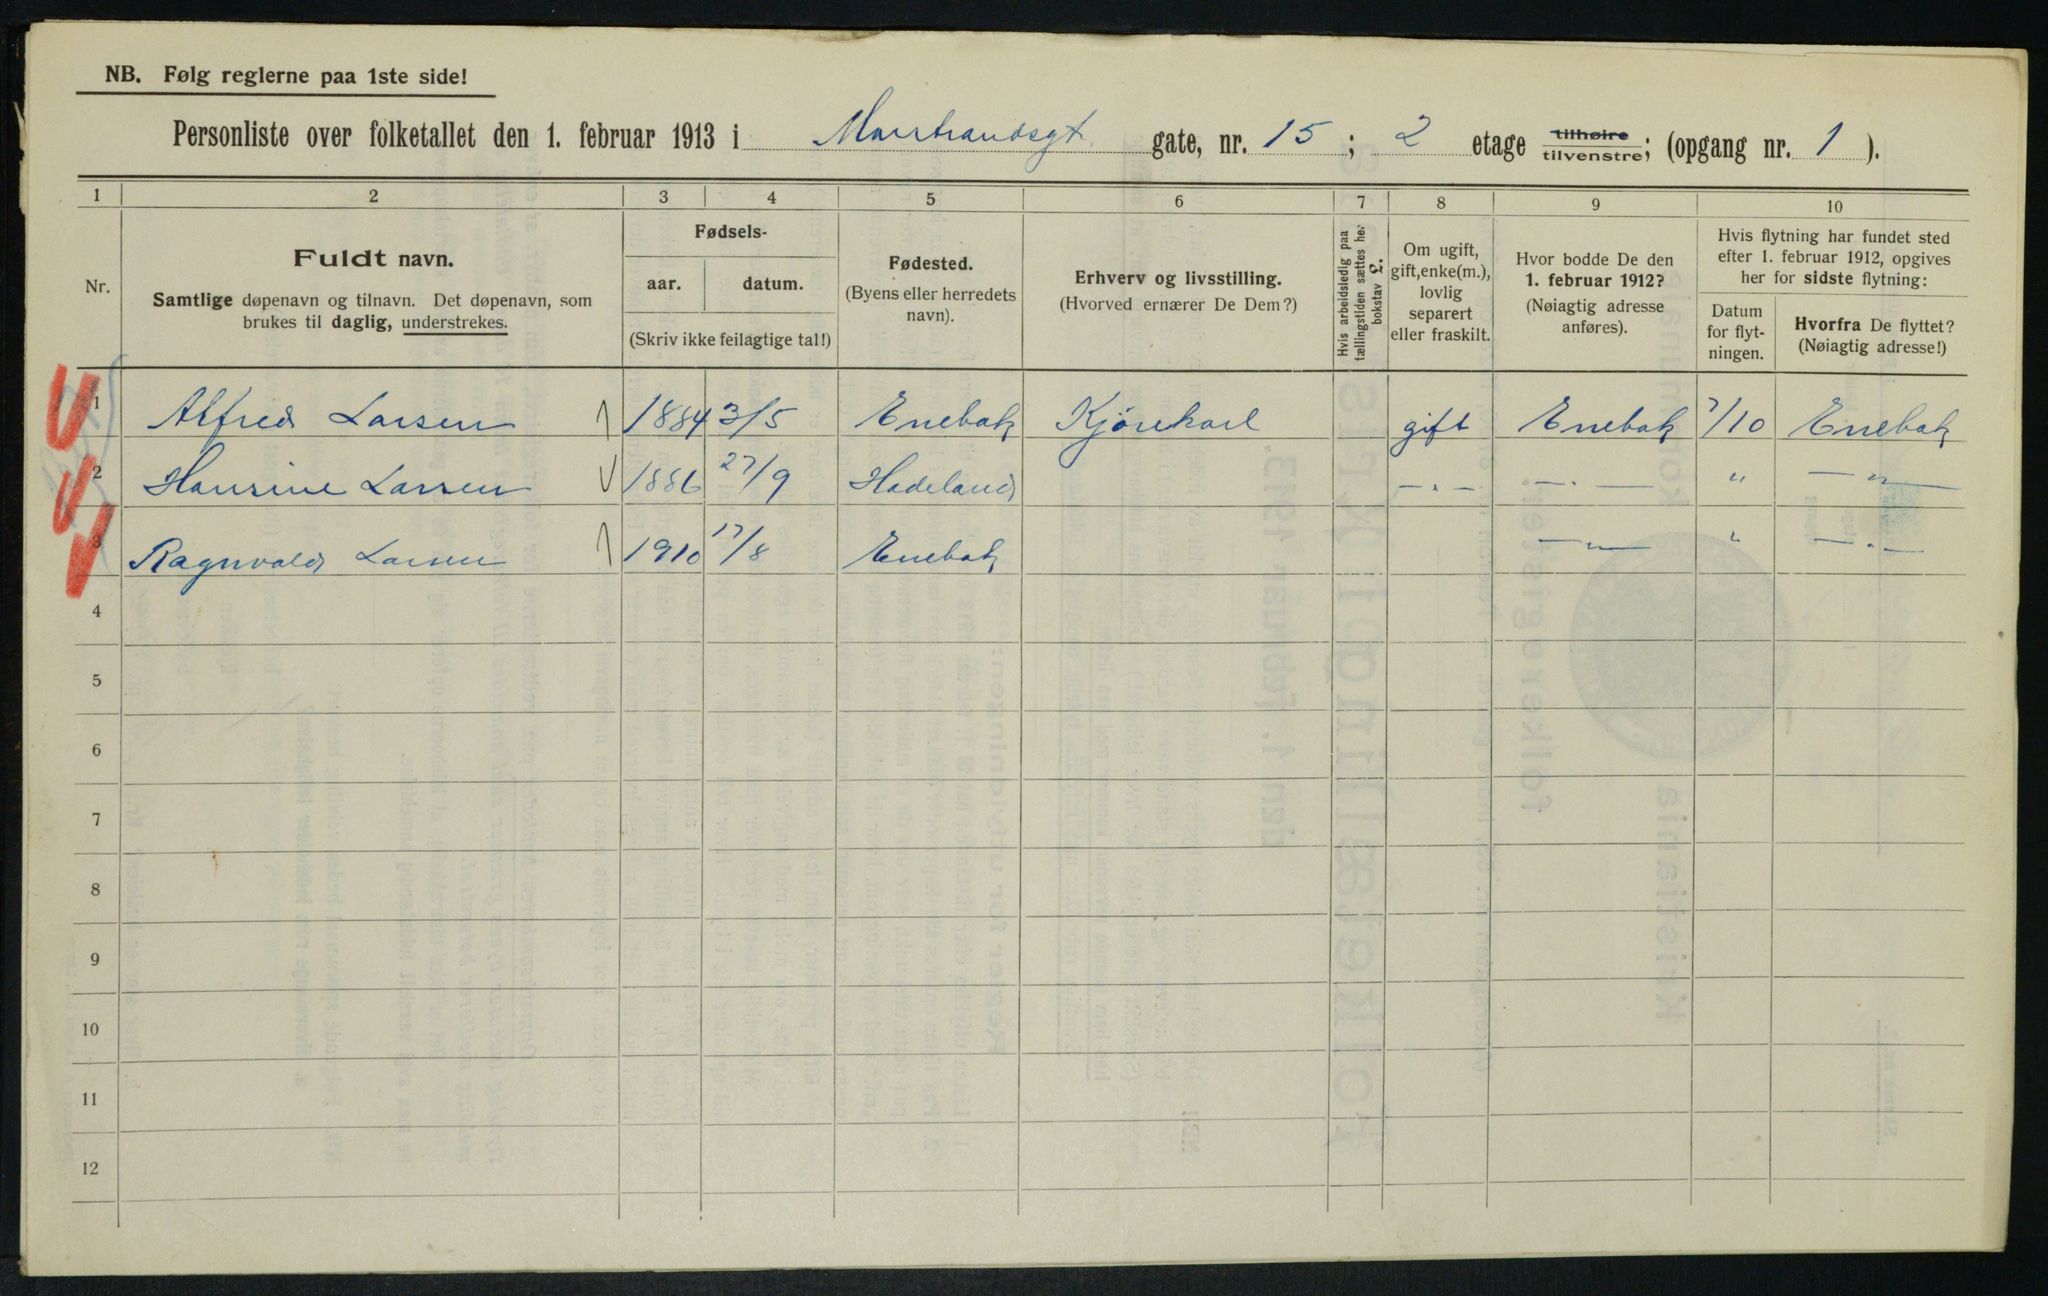 NB. Følg reglerne paa 1ste side!
Personliste over folketallet den 1. februar 1913 i Marstrandsgt. gate, nr. 15; 2 etage tilhøire tilvenstre; (opgang nr. 1).
1 2 3 4 5 6 7 8 9 10
Nr.
Fuldt navn.
Samtlige døpenavn og tilnavn. Det døpenavn, som
brukes til daglig, understrekes.
Fødsels-
aar. datum.
(Skriv ikke feilagtige tal!)
Fødested.
(Byens eller herredets
navn).
Erhverv og livsstilling.
(Hvorved ernærer De Dem?)
Hvis arbeidsledig paa
tællingstiden sættes her
bokstav L.
Om ugift,
gift, enke(m.),
lovlig
separert
eller fraskilt.
Hvor bodde De den
1. februar 1912?
(Nøiagtig adresse
anføres).
Hvis flytning har fundet sted
efter 1. februar 1912, opgives
her for sidste flytning:
Datum
for flyt-
ningen.
Hvorfra De flyttet?
(Nøiagtig adresse!)
1 Alfred Larsen 1884 3/5 Enebak Kjørekarl gift Enebak 7/10 Enebak
2 Hansine Larsen 1886 27/9 Hadeland — . — — . — " — " —
3 Ragnvald Larsen 1910 17/8 Enebak — " — " — . —
4
5
6
7
8
9
10
11
12